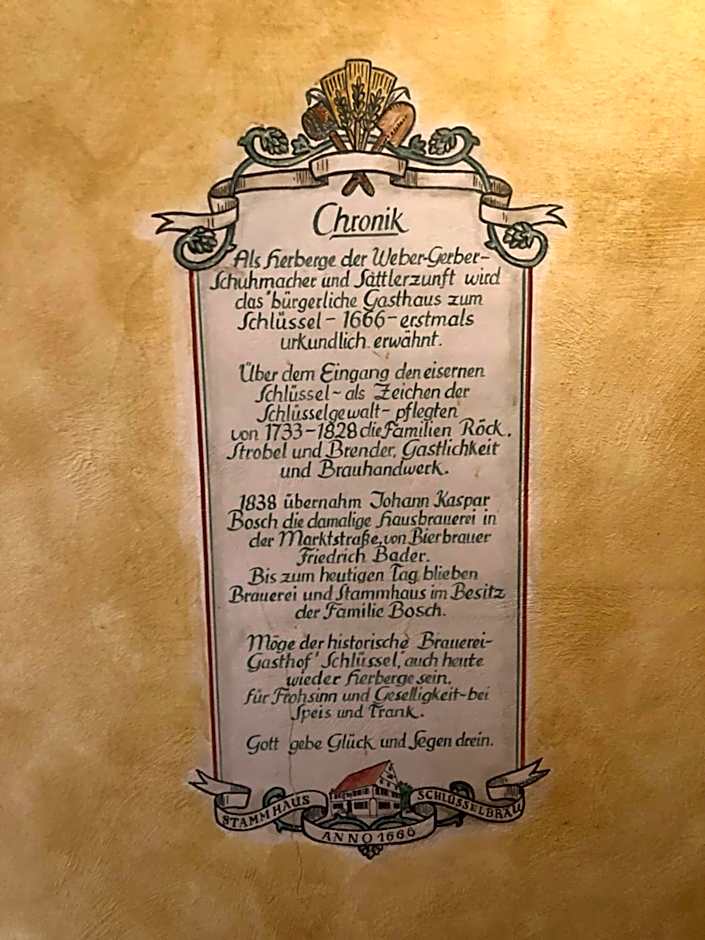 Chronik
Als Herberge der Weber-Gerber-
Schuhmacher und Sattlerzunft wird
das "bürgerliche Gasthaus zum
Schlüssel - 1666 - erstmals
urkundlich erwähnt.
Über dem Eingang den eisernen
Schlüssel - als Zeichen der
Schlüsselgewalt - pflegten
von 1733-1828 die Familien Röck,
Strobel und Brender, Gastlichkeit
und Brauhandwerk.
1838 übernahm Johann Kaspar
Bosch die damalige Hausbrauerei in
der Marktstraße, von Bierbrauer
Friedrich Bader.
Bis zum heutigen Tag blieben
Brauerei und Stammhaus im Besitz
der Familie Bosch.
Möge der historische Brauerei-
Gasthof "Schlüssel," auch heute
wieder Herberge sein,
für Frohsinn und Geselligkeit - bei
Speis und Trank.
Gott gebe Glück und Segen drein.
STAMMHAUS SCHLÜSSELBRÄU
ANNO 1666